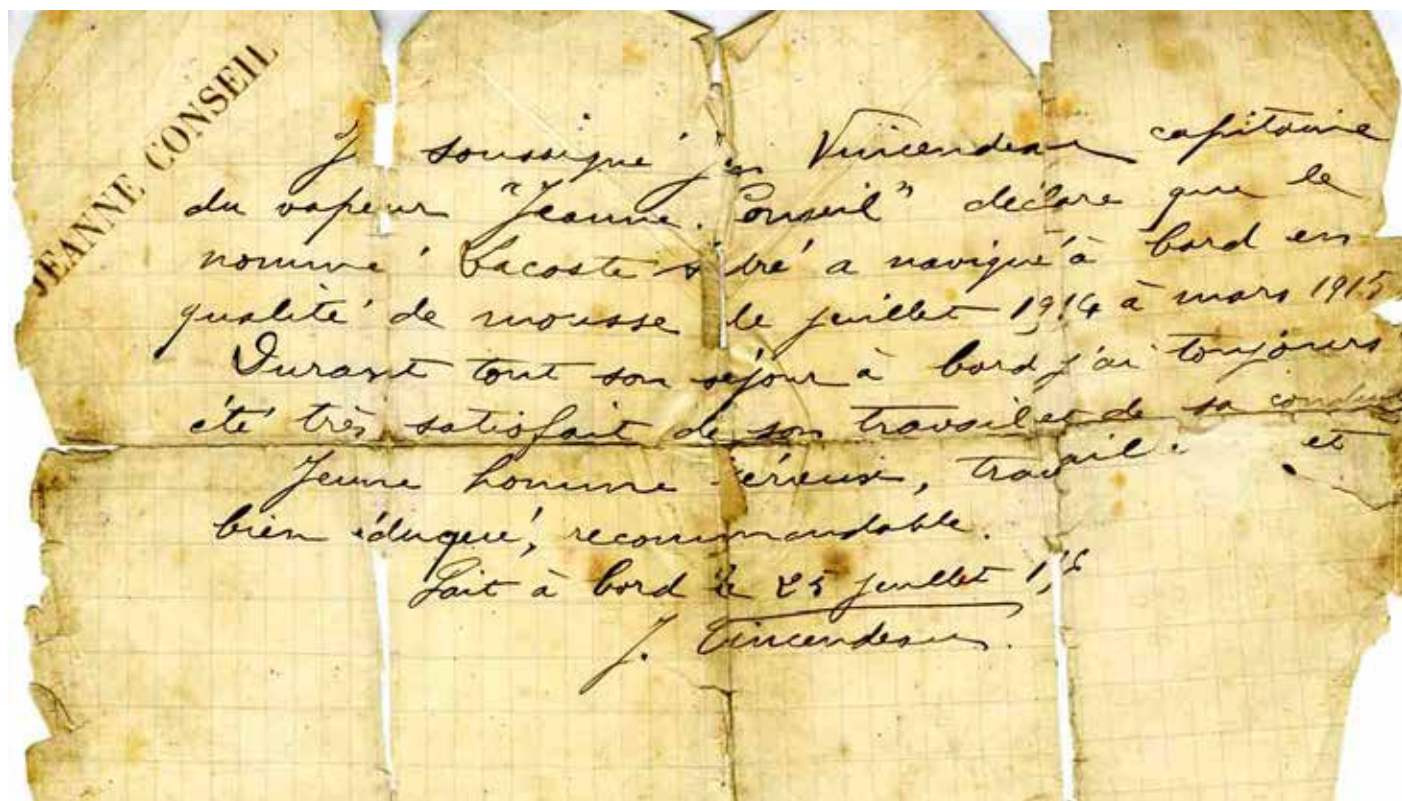 JEANNE CONSEIL
Je soussigné Vincendeau capitaine
du vapeur "Jeanne Conseil" déclare que le
nommé Lacoste a navigué à bord en
qualité de mousse de juillet 1914 à mars 1915
Durant tout son séjour à bord j'ai toujours
été très satisfait de son travail et de sa conduite
Jeune homme sérieux, et
bien éduqué, recommandable.
Fait à bord le 25 juillet
J. Vincendeau.